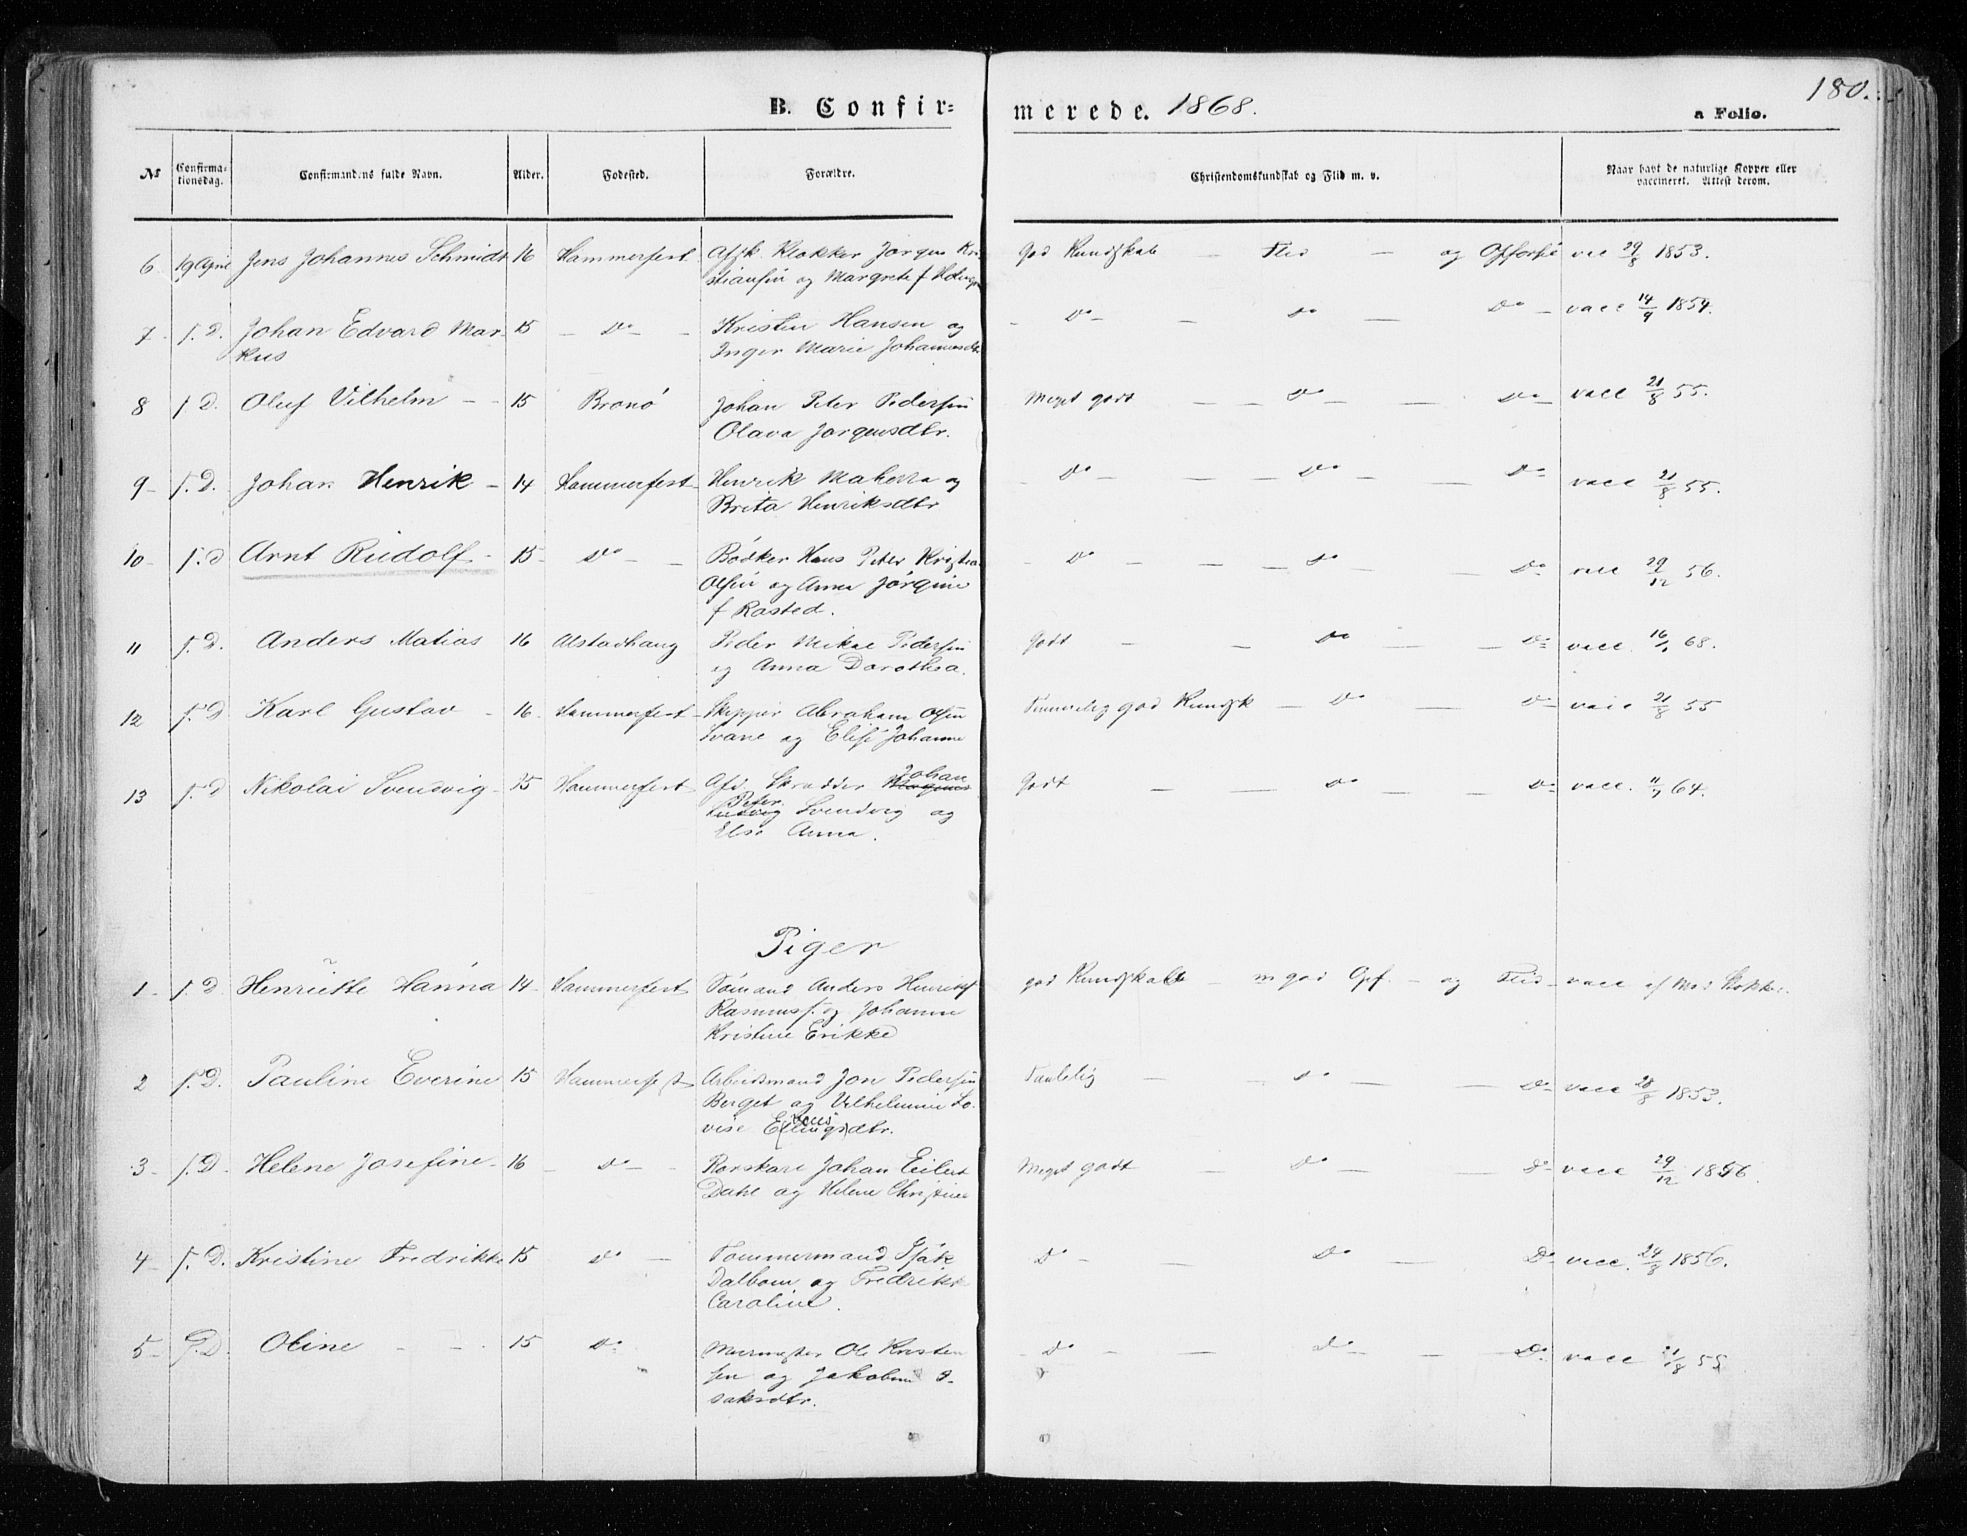 180.
B. Confirmerede. 1868. a Folio.
№ Confirmationsdag. Confirmandens fulde Navn. Alder. Fødested. Forældre. Christendomskundskab og Flid m. v. Naar havt de naturlige Kopper eller vaccineret. Attest derom.
6 19 April Jens Johannes Schmidt 16 Hammerfest Afsk. Klokker Jørgen Kri- God Kundskab — Flid — og Opførsel vac 29/8 1853.
stiansen og Margrete f.
7 s. D. Johan Edvard Mar- 15 — Do — Kristen Hansen og — Do — Do — Do — vacc 14/9 1854.
kus Inger Marie Johannesdtr
8 s. D. Oluf Vilhelm — 15 Brønø Johan Peter Pedersen Meget godt — Do — Do — vacc 21/8 55.
Olava Jørgensdtr.
9 — s. D. Johan Henrik — 14 Hammerfest Henrik og — Do — Do — Do vacc 21/8 55.
Brita Henriksdtr
10 — s. D Arnt Rudolf — 15 — Do — Bødker Hans Peter Kristian — Do — Do — Do vacc 29/12 56.
Olsen og Anna Jørgine
f Rasted.
11 s. D. Anders Matias 16 Alstadhaug Peder Mikal Pedersen Godt — Do — Do vacc. 16/1 68.
og Anna Dorothea.
12 s. D Karl Gustav — 16. Hammerfest Skipper Abraham Olsen Temmelig god Kundsk — Do — Do vacc 21/8 55
Svane og Elise Johanne
13 s. D Nikolai Svendvig — 15 Hammerfest Afd. Skrædder Johan Godt — Do — Do vacc. 11/7 64.
Peter
Ludvig Svendvig og
Else Anna.
Piger
1 — s. D. Henriette Hanna 14 — Hammerfest Sømand Anders Henrik god Kundskab — m god Opf. — og Flid — vacc af Mod Kokker.
Rasmuss. og Johanne
Kristine Erikke
2 s. D. Pauline Everine 15 Hammerfest Arbeidsmand Jon Pedersen Taalelig — Do — Do vacc 28/8 1853.
Berget og Vilhelmine Lo-
vise Ellingsdtr.
3 — s. D. Helene Josefine — 16 — Do — Johan Eilert Meget godt — Do — Do vacc 29/12 1856.
Dahl og Helene Christine
4 — s. D. Kristine Fredrikke 15 Do — Tømmermand Isak Do — Do — Do vacc. 24/8 1856.
Dalbom og Fredrikke
Caroline.
5 — s. D. Oline — — 15 Do Murmester Ole Kristen — Do — Do — Do vacc 21/8 55
sen og Jakobine I-
saksdtr.